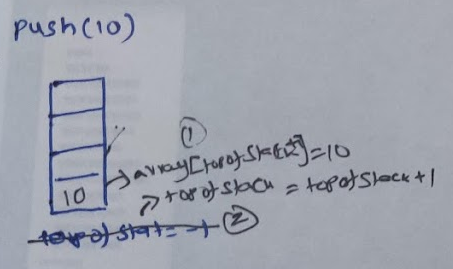 push(10)
①
array[topofStack]=10
10
topofstack = topofStack+1
topofstat=-1 ②